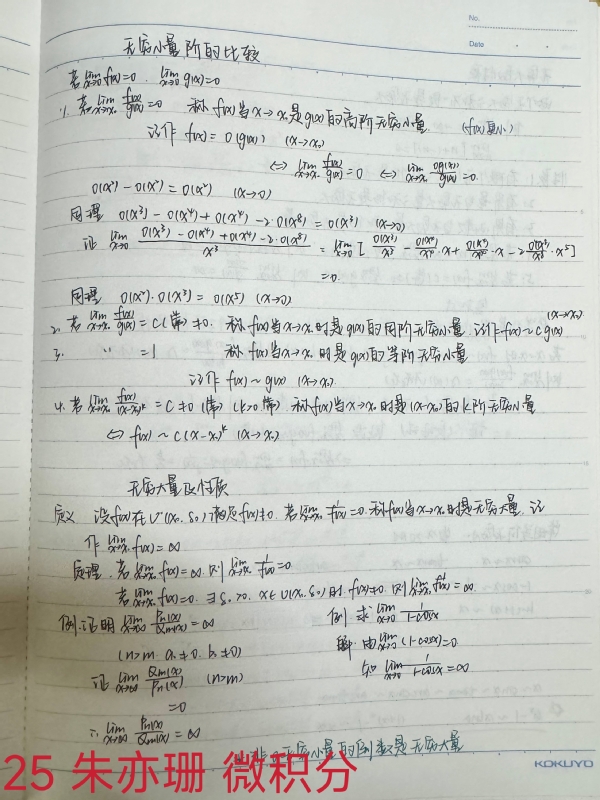 No.
Date
无穷小量阶的比较
若lim x→0 f(x)=0 . lim x→0 g(x)=0
1. 若lim x→x₀ f(x)/g(x)=0 称f(x)当x→x₀是g(x)的高阶无穷小量. (f(x)更小)
记作 f(x) = o(g(x)) (x→x₀)
⇔ lim x→x₀ f(x)/g(x)=0 ⇔ lim x→x₀ o(g(x))/g(x)=0.
o(x²) - o(x²) = o(x²) (x→0)
同理 o(x³) - o(x⁴) + o(x⁴) - 2·o(x⁸) = o(x³) (x→0)
证 lim x→0 o(x³) - o(x⁴) + o(x⁴) - 2·o(x⁸) / x³ = lim x→0 [ o(x³)/x³ - o(x⁴)/x⁴ · x + o(x⁴)/x⁴ · x - 2 o(x⁸)/x⁸ · x⁵ ]
=0.
同理 o(x²)·o(x³) = o(x⁵) (x→0)
2. 若 lim x→x₀ f(x)/g(x) = C(常) ≠0. 称f(x)当x→x₀时是g(x)的同阶无穷小量 记作f(x)~Cg(x) (x→x₀)
3. 〃 =1 称f(x)当x→x₀时是g(x)的等阶无穷小量
记作 f(x) ~ g(x) (x→x₀)
4. 若 lim x→x₀ f(x)/(x-x₀)ᵏ = C ≠0 (常) (k>0 常) 称f(x)当x→x₀时是(x-x₀)的k阶无穷小量
⇔ f(x) ~ C(x-x₀)ᵏ (x→x₀)
无穷大量及性质
定义 设f(x)在U°(x₀,δ₀)满足f(x)≠0. 若lim x→x₀ 1/f(x)=0. 称f(x)当x→x₀时是无穷大量. 记
作 lim x→x₀ f(x)=∞
定理. 若lim x→x₀ f(x)=∞. 则lim x→x₀ 1/f(x)=0
若lim x→x₀ f(x)=0. ∃δ₀>0, x∈U(x₀,δ₀)时. f(x)≠0. 则lim x→x₀ 1/f(x)=∞
例.证明lim x→∞ Pn(x)/Qm(x)=∞
例. 求 lim x→0 1/1-cosx
(n>m. a₀≠0. b₀≠0)
解. 由lim x→0 (1-cosx)=0
证 lim x→∞ Qm(x)/Pn(x) (n>m)
知 lim x→0 1/1-cosx=∞
=0
∴ lim x→∞ Pn(x)/Qm(x)=∞
非0无穷小量的倒数是无穷大量
25 朱亦珊 微积分
KOKUYO